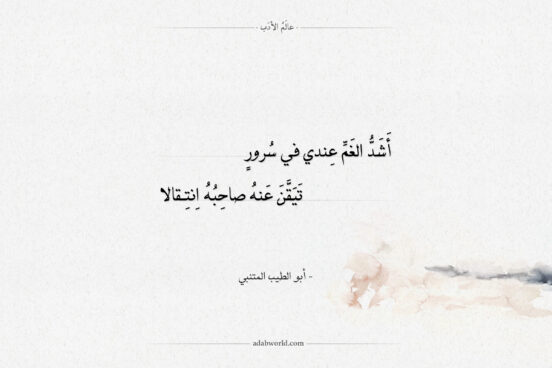 عالَمُ الأدَبِ
أَشَدُّ الغَمِّ عِندي في سُرورٍ
تَيَقَّنَ عَنهُ صاحِبُهُ اِنتِـقالا
- أبو الطيب المتنبي
adabworld.com